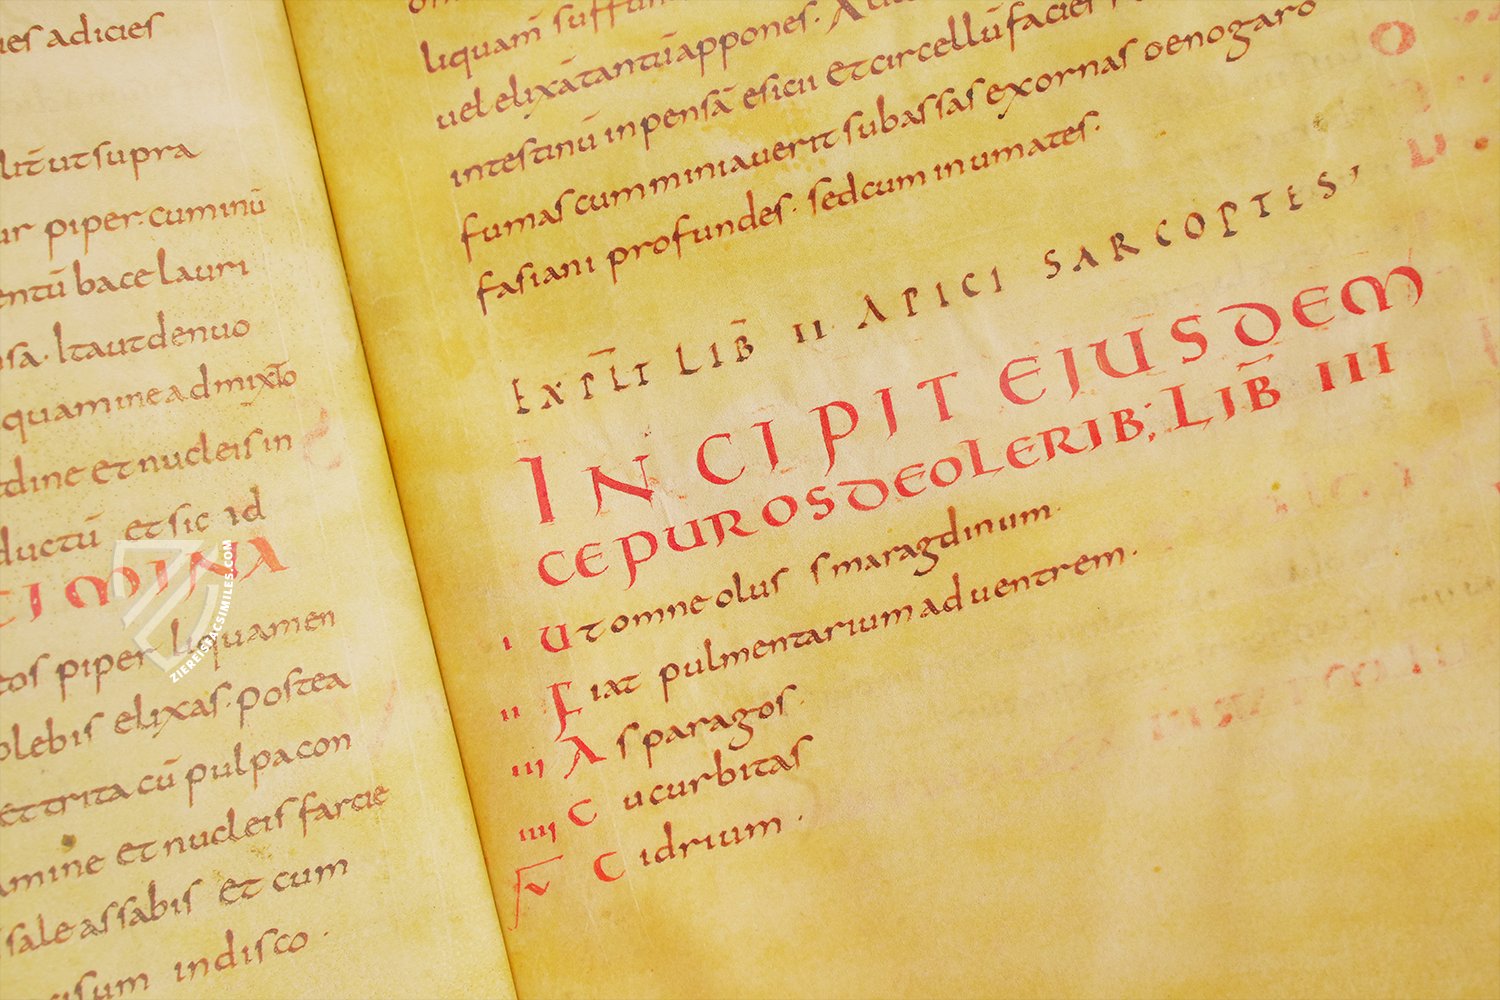 es adicies
lit ut supra
ur piper. cuminū
entū bace lauri
sa. Itaut denuo
quamine admixto
dine et nucleis in
ductū et sic id
CIMINA
tos piper liquamen
olebis elixas. postea
et trita cū pulpa con
amine et nucleis farcie
sale assabis et cum
indisco.
liquam suffun
uel elixā tantū appones. A
intestinū inpensā esicii et circellū facies
fumas cum miniauerit subassas exornas oenogaro
fasiani profundes. sed cum inumates.
EXPLIT LIB̄ II APICI SARCOPTES,
INCIPIT EJUSDEM
CEPUROS DE OLERIB; LIB̄ III
I Ut omne olus smaragdinum.
II Fiat pulmentarium ad uentrem.
III Asparagos.
IIII Cucurbitas
V Cidrium.
ZIEREISFACSIMILES.COM